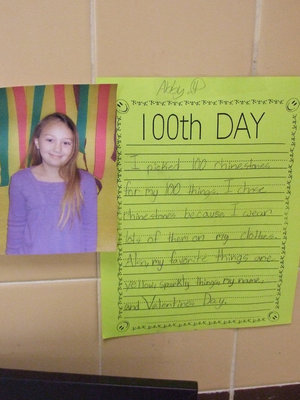 Abby P
100th DAY
I picked 100 rhinestones
for my 100 things. I chose
rhinestones because I wear
lots of them on my clothes.
Also, my favorite things are
yellow, sparkly things, my name,
and Valentines Day.